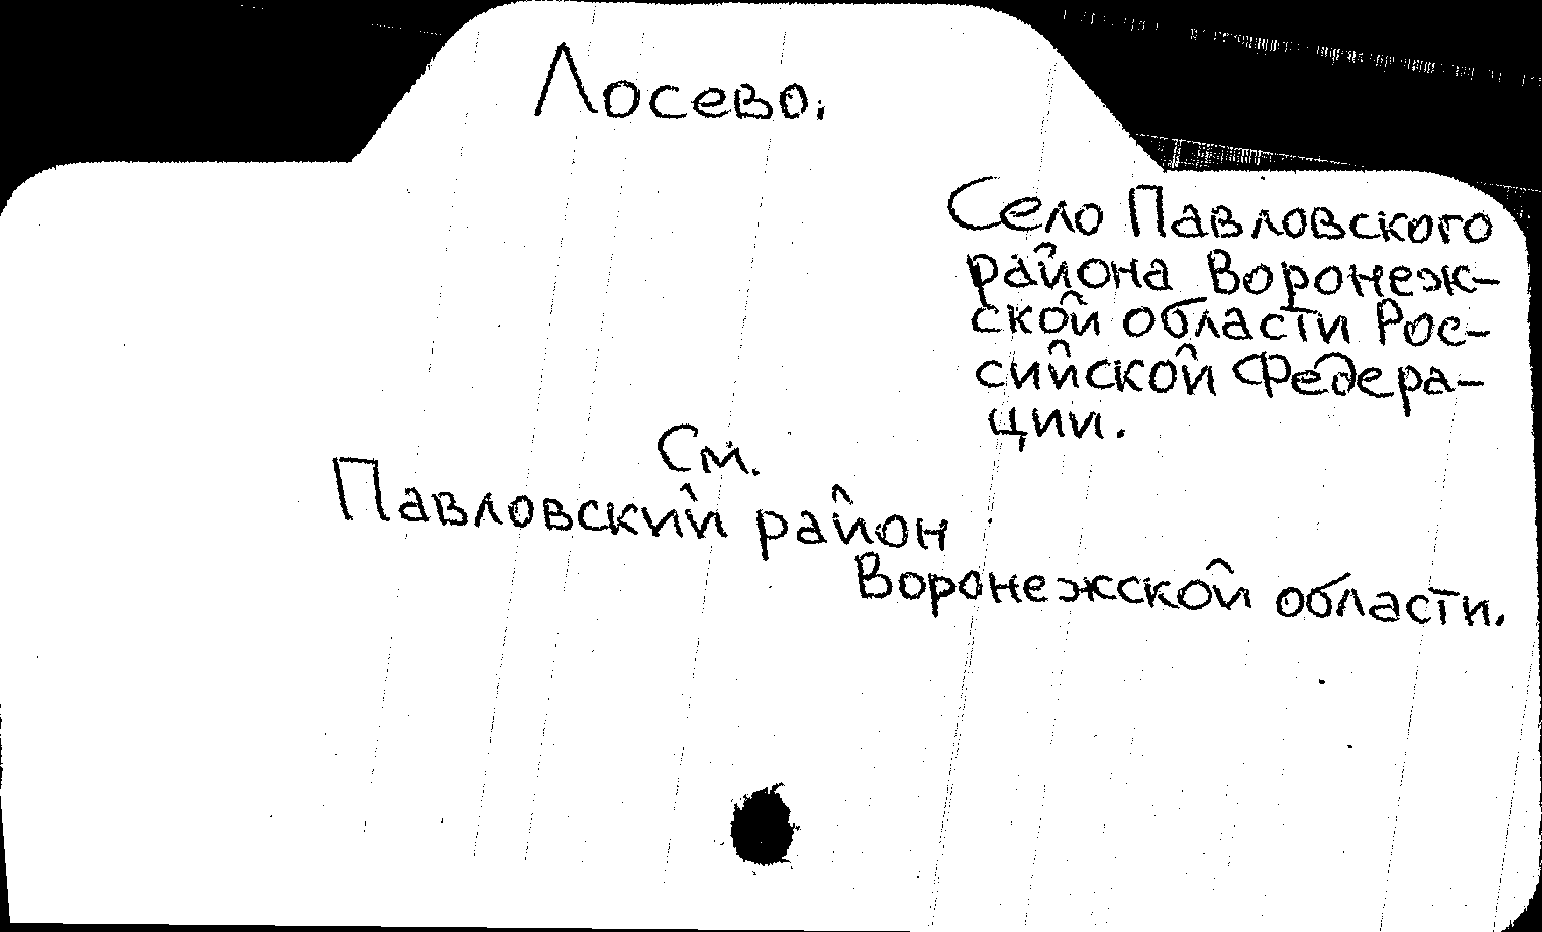 Лосево.
Село Павловского
района Воронеж-
ской области Рос-
сийской Федера-
ции.
См.
Павловский район
Воронежской области.